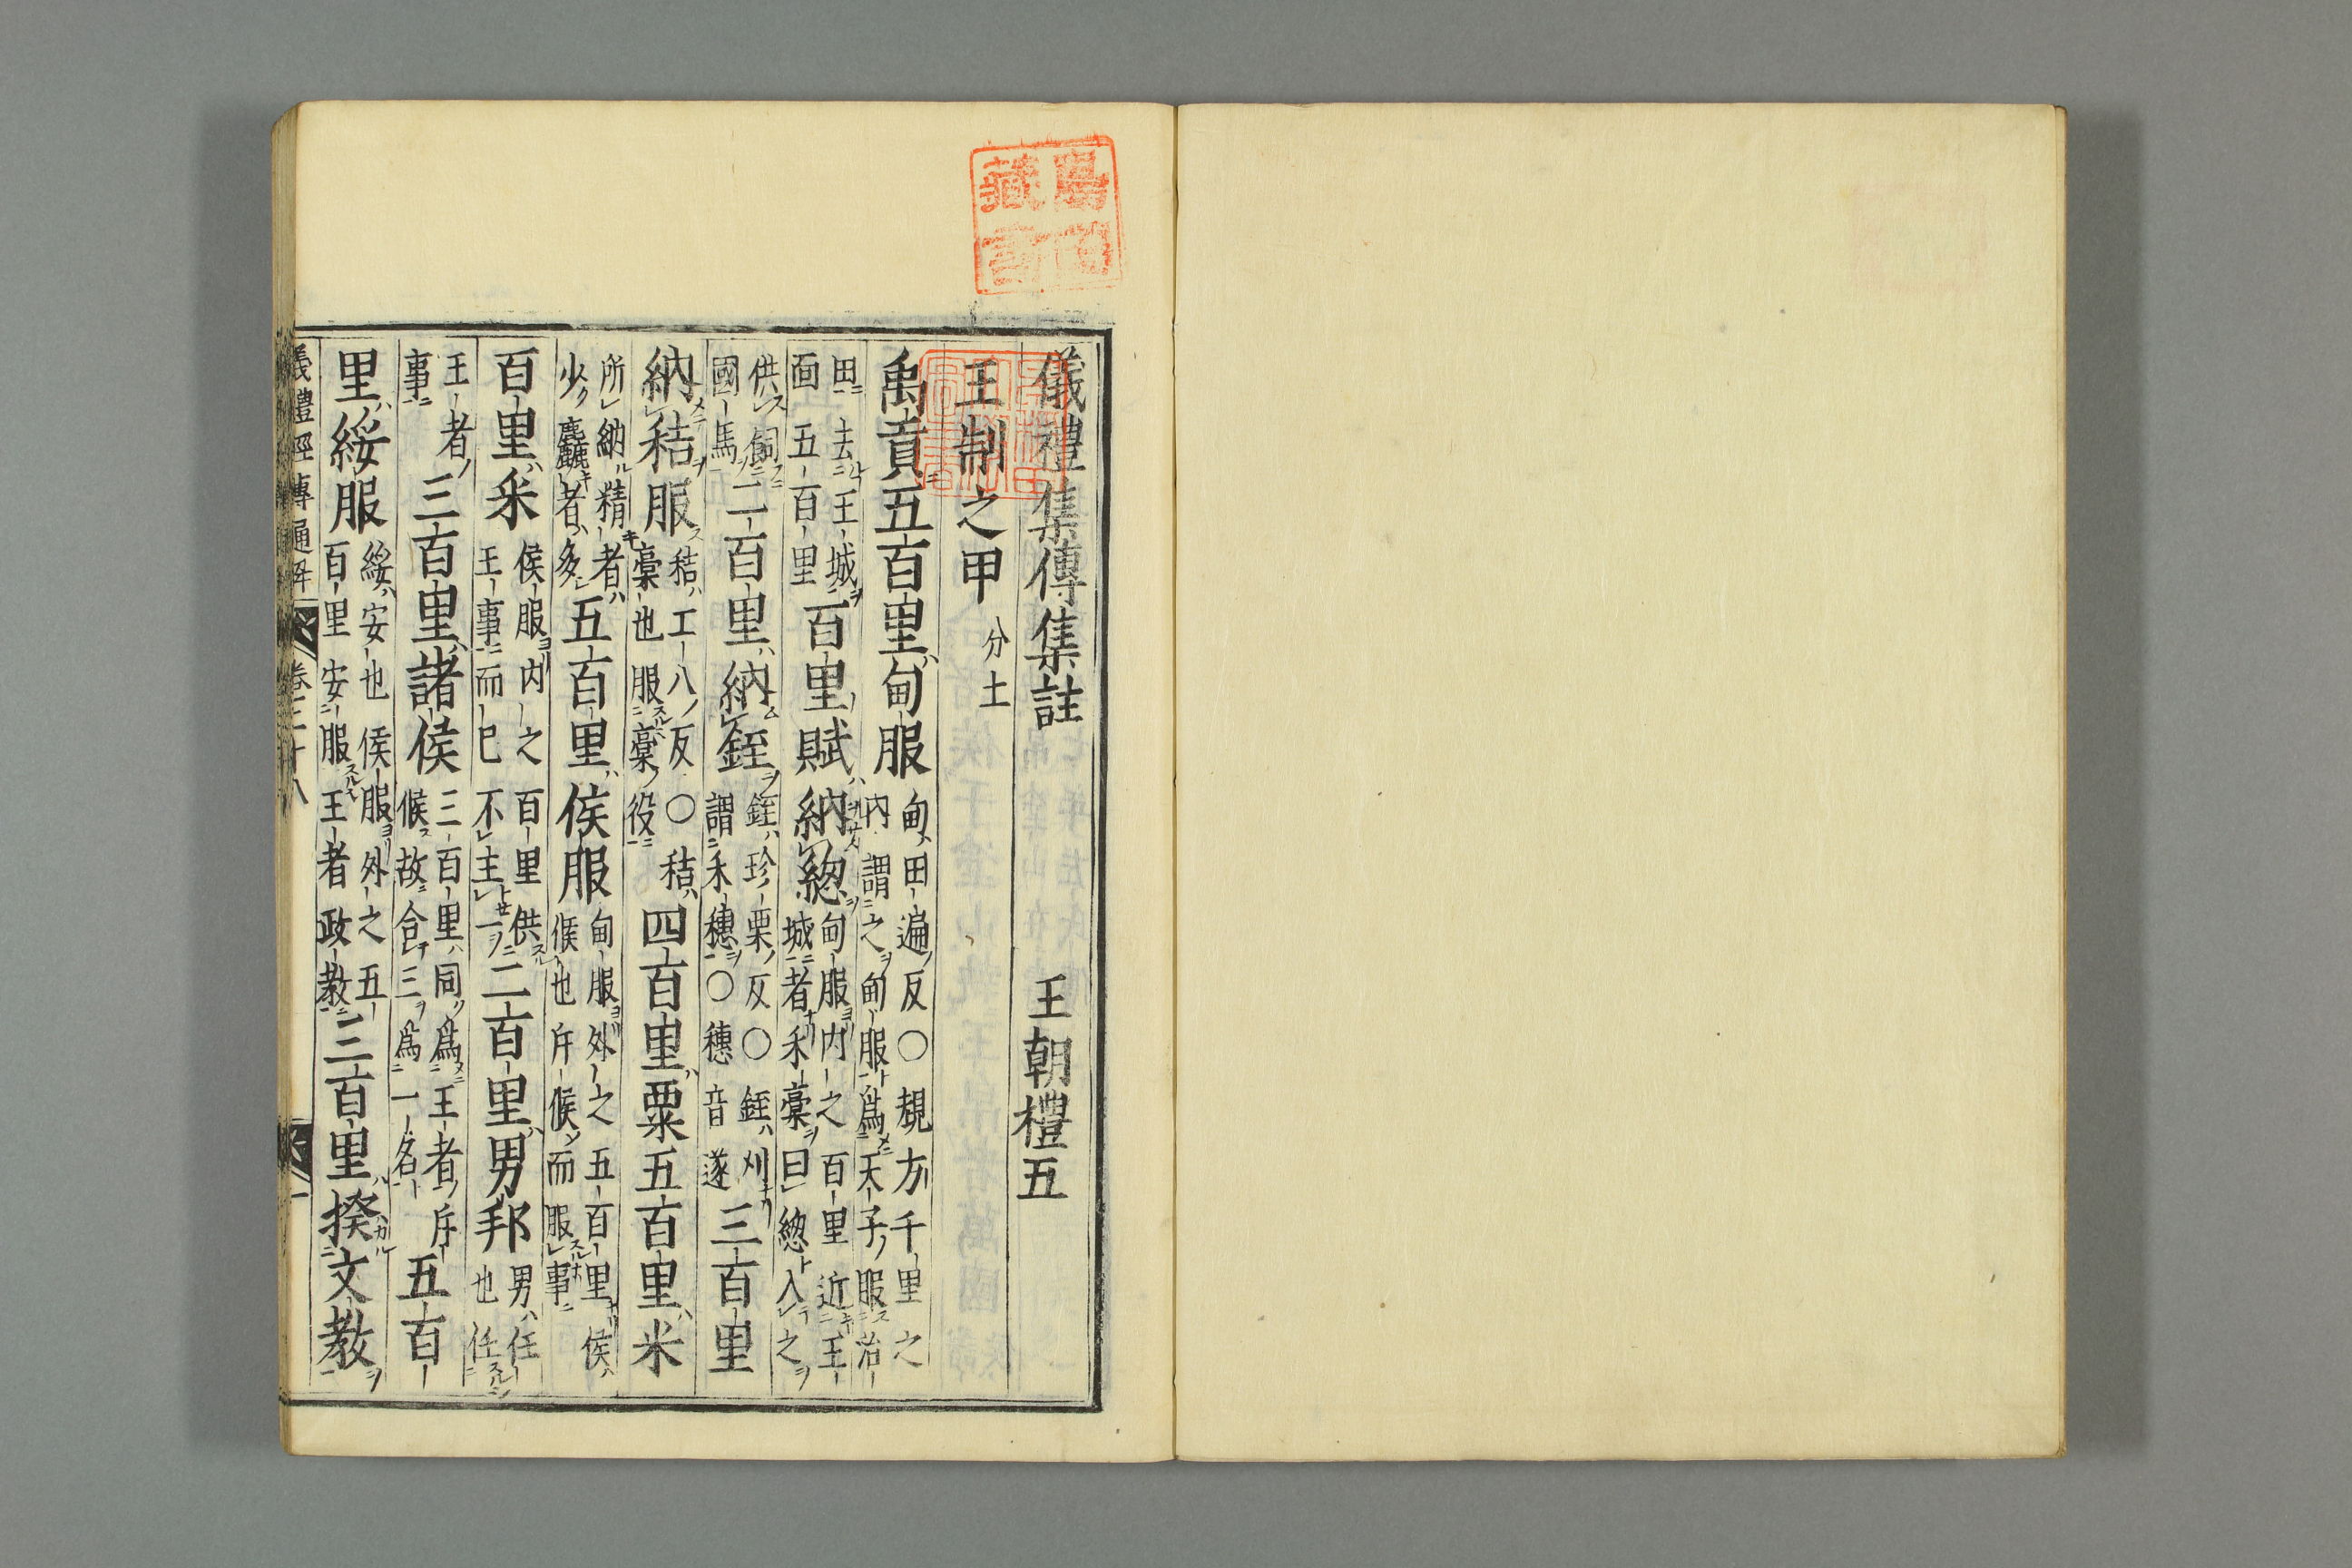 儀禮集傳集註　王朝禮五
王制之甲　分土
禹貢五百里甸服　甸田遍反○規方千里之内謂之甸服爲天子服治
田去王城面五百里　百里賦納緫　甸服内之百里近王城者禾藁曰緫入之
供飼國馬　二百里納銍　銍珍栗反○銍刈謂禾穗○穗音遂　三百里
納秸服　秸工八反○秸藁也服藁役　四百里粟五百里米
所納精者少麤者多　五百里侯服　甸服外之五百里侯候也斥候而服事
百里采　侯服内之百里供王事而已不主一　二百里男邦　男任也任
王者事　三百里諸侯　三百里同爲王者斥候故合三爲一名　五百
里綏服　綏安也侯服外之五百里安服王者政教　三百里揆文教
儀禮經傳通解　卷二十八　一